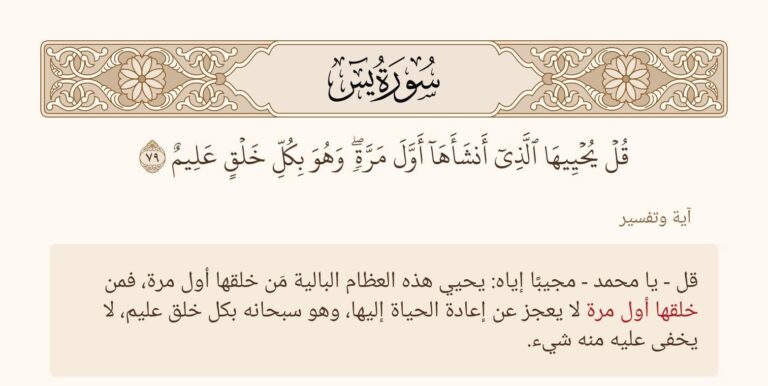 سُورَةُ يسٓ
قُلۡ يُحۡيِيهَا ٱلَّذِيٓ أَنشَأَهَآ أَوَّلَ مَرَّةٖۖ وَهُوَ بِكُلِّ خَلۡقٍ عَلِيمٌ ٧٩
آية وتفسير
قل - يا محمد - مجيبًا إياه: يحيي هذه العظام البالية مَن خلقها أول مرة، فمن
خلقها أول مرة لا يعجز عن إعادة الحياة إليها، وهو سبحانه بكل خلق عليم، لا
يخفى عليه منه شيء.